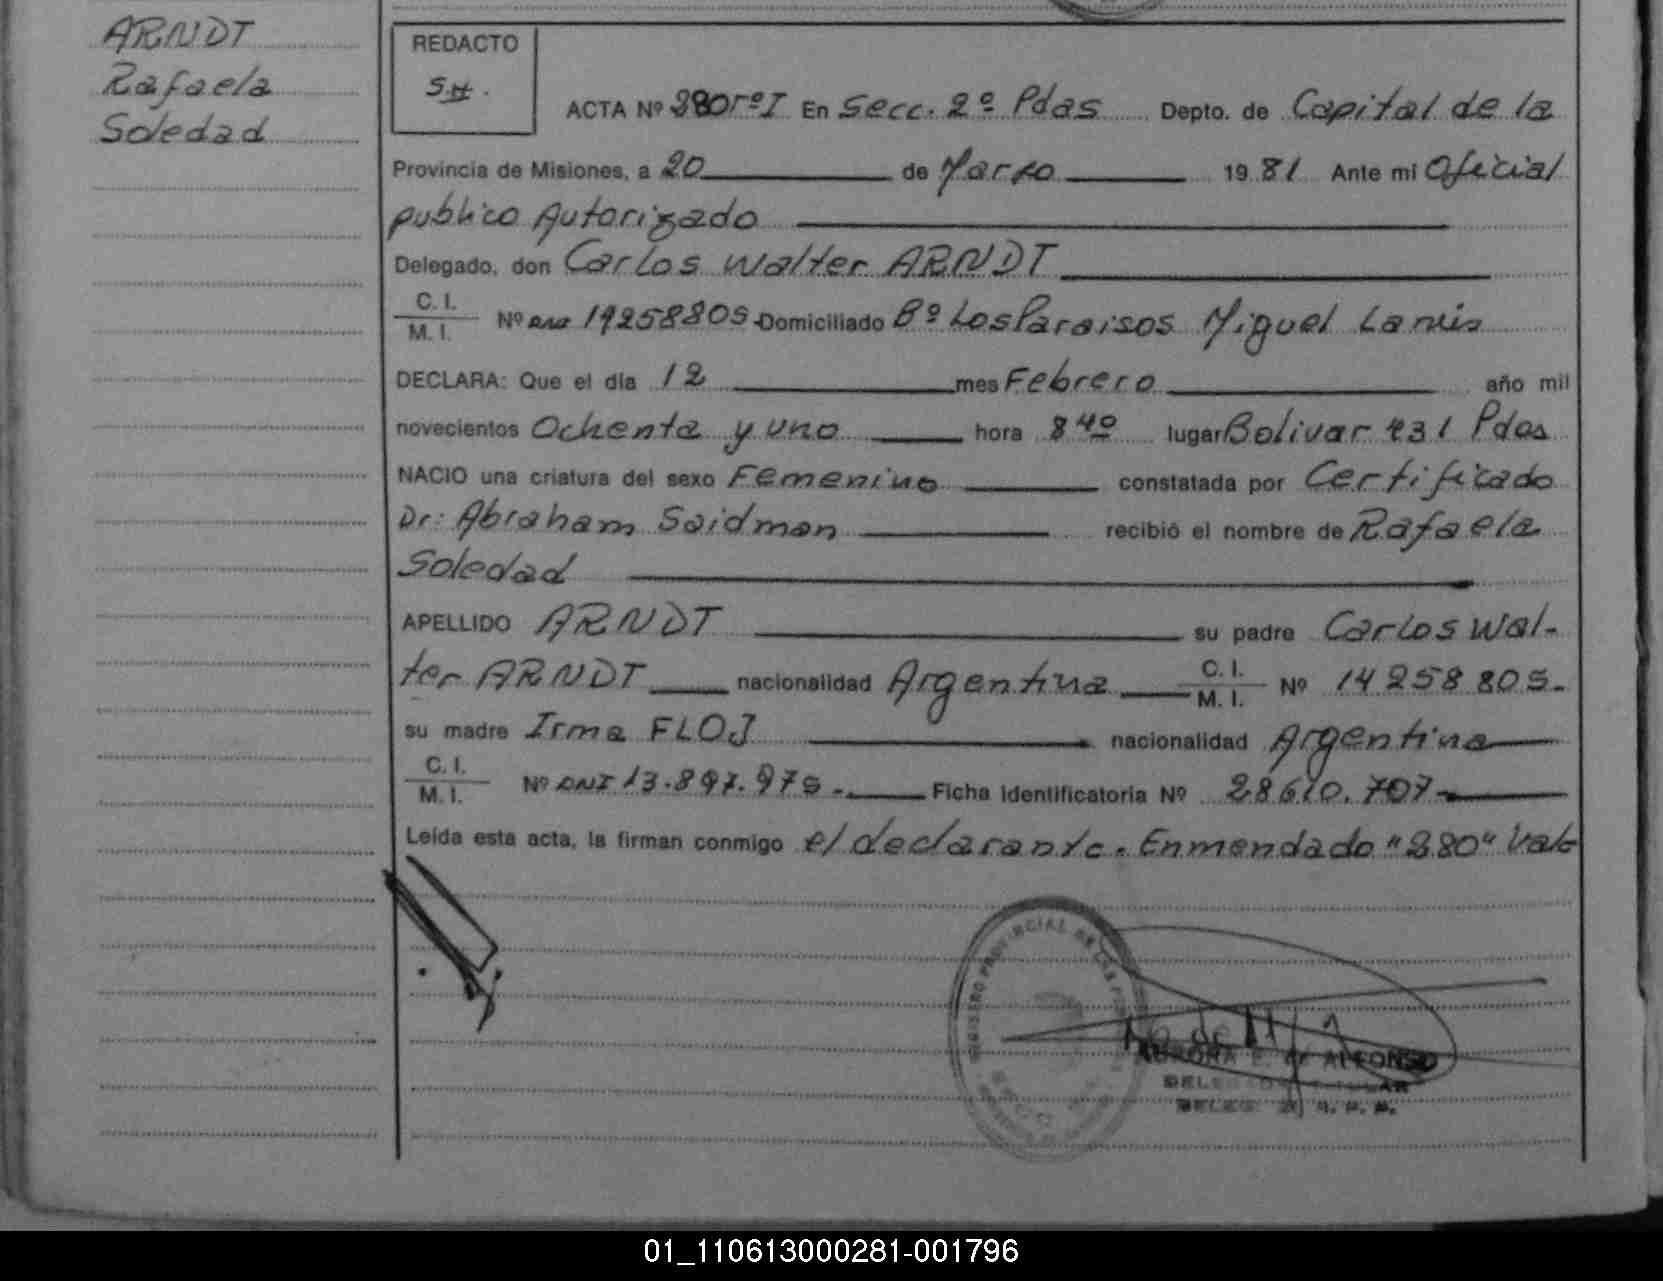 ARNDT
Rafaela
Soledad
REDACTO
S.H.
ACTA Nº 380 TºI En Secc. 2º Pdas Depto. de Capital de la
Provincia de Misiones, a 20 de Marzo 19 81 Ante mi Oficial
publico Autorizado
Delegado, don Carlos Walter ARNDT
C. I.
M. I.
Nº DNI 14258805 Domiciliado Bº Los Paraisos Miguel Lanus
DECLARA: Que el día 12 mes Febrero año mil
novecientos Ochenta y uno hora 8 40 lugar Bolivar 431 Pdas
NACIO una criatura del sexo Femenino constatada por Certificado
Dr: Abraham Saidman recibió el nombre de Rafaela
Soledad
APELLIDO ARNDT su padre Carlos Wal-
ter ARNDT nacionalidad Argentina C. I. M. I. Nº 14258805.
su madre Irma FLOJ nacionalidad Argentina
C. I.
M. I.
Nº DNI 13.897.975.- Ficha Identificatoria Nº 28610.707-
Leída esta acta, la firman conmigo el declarante. Enmendado "380" Vale
REGISTRO PROVINCIAL DE LAS
AURORA E. de ALFONSO
DELEGADO TITULAR
01_110613000281-001796